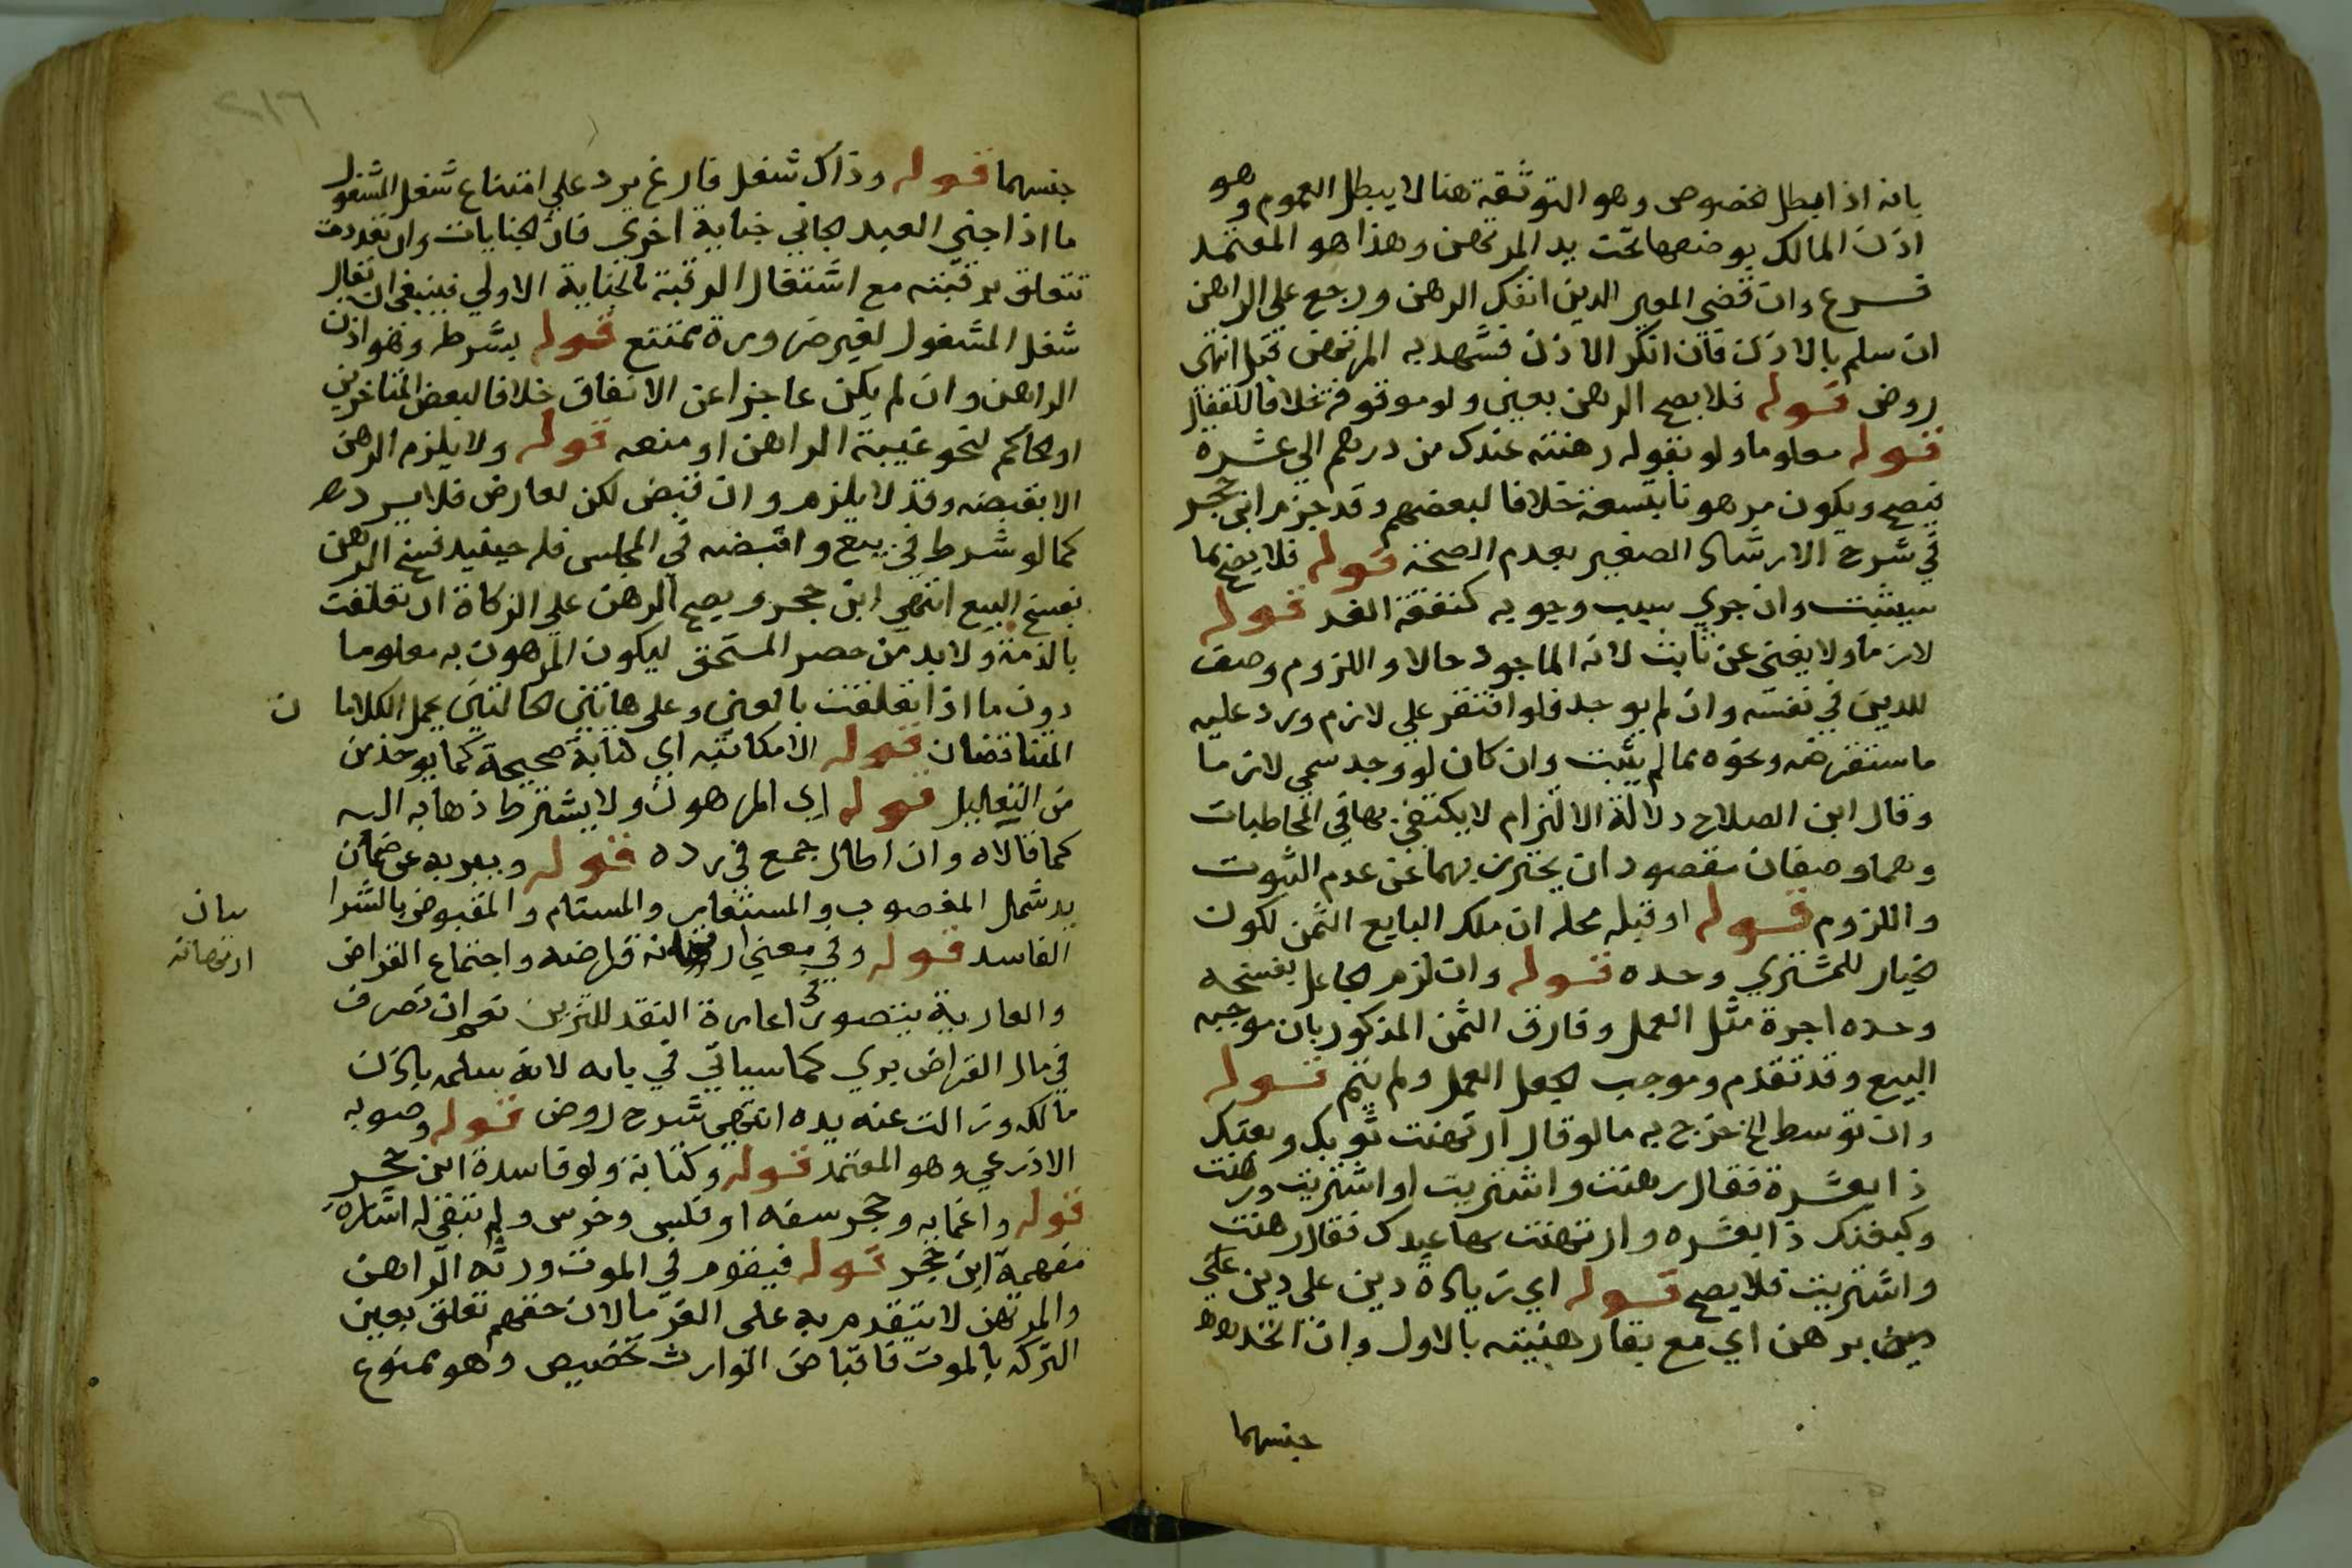 بانه اذا بطل الخصوص وهو التوثقة هنا لا يبطل العموم وهو
اذن المالك بوضعها تحت يد المرتهن وهذا هو المعتمد
فرع وان قضى المعير الدين انفك الرهن ورجع على الراهن
ان سلم بالاذن فان انكر الاذن فشهد به المرتهن قبل انتهى
روض قوله فلا يصح الرهن بعين ولو موقوفة خلافا للقفال
قوله معلوما ولو بقوله رهنته عندك من درهم الي عشرة
فيصح ويكون مرهونا بتسعة خلافا لبعضهم وقد جزم ابن حجر
في شرح الارشاد الصغير بعدم الصحة قوله فلا يصح بما
سيثبت وان جري سبب وجوبه كنفقة الغد قوله
لازما ولا يغني عن ثابت لانه الموجود حالا واللزوم وصف
للدين في نفسه وان لم يوجد فلو اقتصر علي لازم ورد عليه
ما ستقرضه ونحوه مما لم يثبت وان كان لو وجد سمي لازما
وقال ابن الصلاح دلالة الالتزام لا يكتفي بها في المخاطبات
وهما وصفان مقصود ان يحترز بهما عن عدم الثبوت
واللزوم قوله او قبله محله ان ملك البايع الثمن لكون
الخيار للمشتري وحده قوله وان لزم الجاعل بفسخه
وحده اجرة مثل العمل وفارق الثمن المذكور بان موجبه
البيع وقد تقدم وموجب الجعل العمل ولم يتم قوله
وان توسط الخ خرج به ما لو قال ارتهنت ثوبك وبعتك
ذا بعشرة فقال رهنت واشتريت او اشتريت ورهنت
وكبعتك ذا بعشره وارتهنت بها عبدك فقال رهنت
واشتريت فلا يصح قوله اي زيادة دين على دين علي
دين برهن اي مع بقا رهنيته بالاول وان اتحد
جنسهما
٢١٦
جنسهما قوله وذاك شغل فارغ يرد علي امتناع شغل المشغول
ما اذا جني العبد الجاني جناية اخري فان الجنايات وان تعددت
تتعلق برقبته مع اشتغال الرقبة بالجناية الاولي فينبغي ان يقال
شغل المشغول لغير ضرورة ممتنع قوله بشرطه وهو اذن
الراهن وان لم يكن عاجزا عن الانفاق خلافا لبعض المتاخرين
او الحاكم لنحو غيبة الراهن او منعه قوله ولا يلزم الرهن
الا بقبضه وقد لا يلزم وان قبض لكن لعارض فلا يرد
كما لو شرط في بيع واقبضه في المجلس فله حينيد فسخ الرهن
بفسخ البيع انتهي ابن حجر ويصح الرهن علي الزكاة ان تعلقت
بالذمة ولا بد من حصر المستحق ليكون المرهون به معلوما
دون ما اذا تعلقت بالعين وعلى هاتين الحالتين يحمل الكلاما
ن
المتناقضان قوله الا مكاتبه اي كتابة صحيحة كما يوخذ من
من التعاليل قوله اي المرهون ولا يشترط ذهابه اليه
كما قالاه وان اطال جمع في رده قوله ويعبر به عن ضمان
يد شمل المغصوب والمستعار والمستام والمقبوض بالشرا
الفاسد قوله وفي معني ارتهانه قراضه واجتماع القراض
بيان
ارتهانه
والعارية يتصور في اعارة النقد للتزين نعم ان تصرف
في مال القراض بري كما سياتي في بابه لانه سلمه باذن
مالكه وزالت عنه يده انتهي شرح روض قوله وصوبه
الاذرعي وهو المعتمد قوله وكتابة ولو فاسدة ابن حجر
قوله واغمايه وحجر سفه او فلس وخرس ولم تبق له اشارة
مفهمة ابن حجر قوله فيقوم في الموت ورثه الراهن
والمرتهن لا يتقدم به على الغرما لان حقهم تعلق بعين
التركه بالموت فاقباض الوارث تخصيص وهو ممنوع